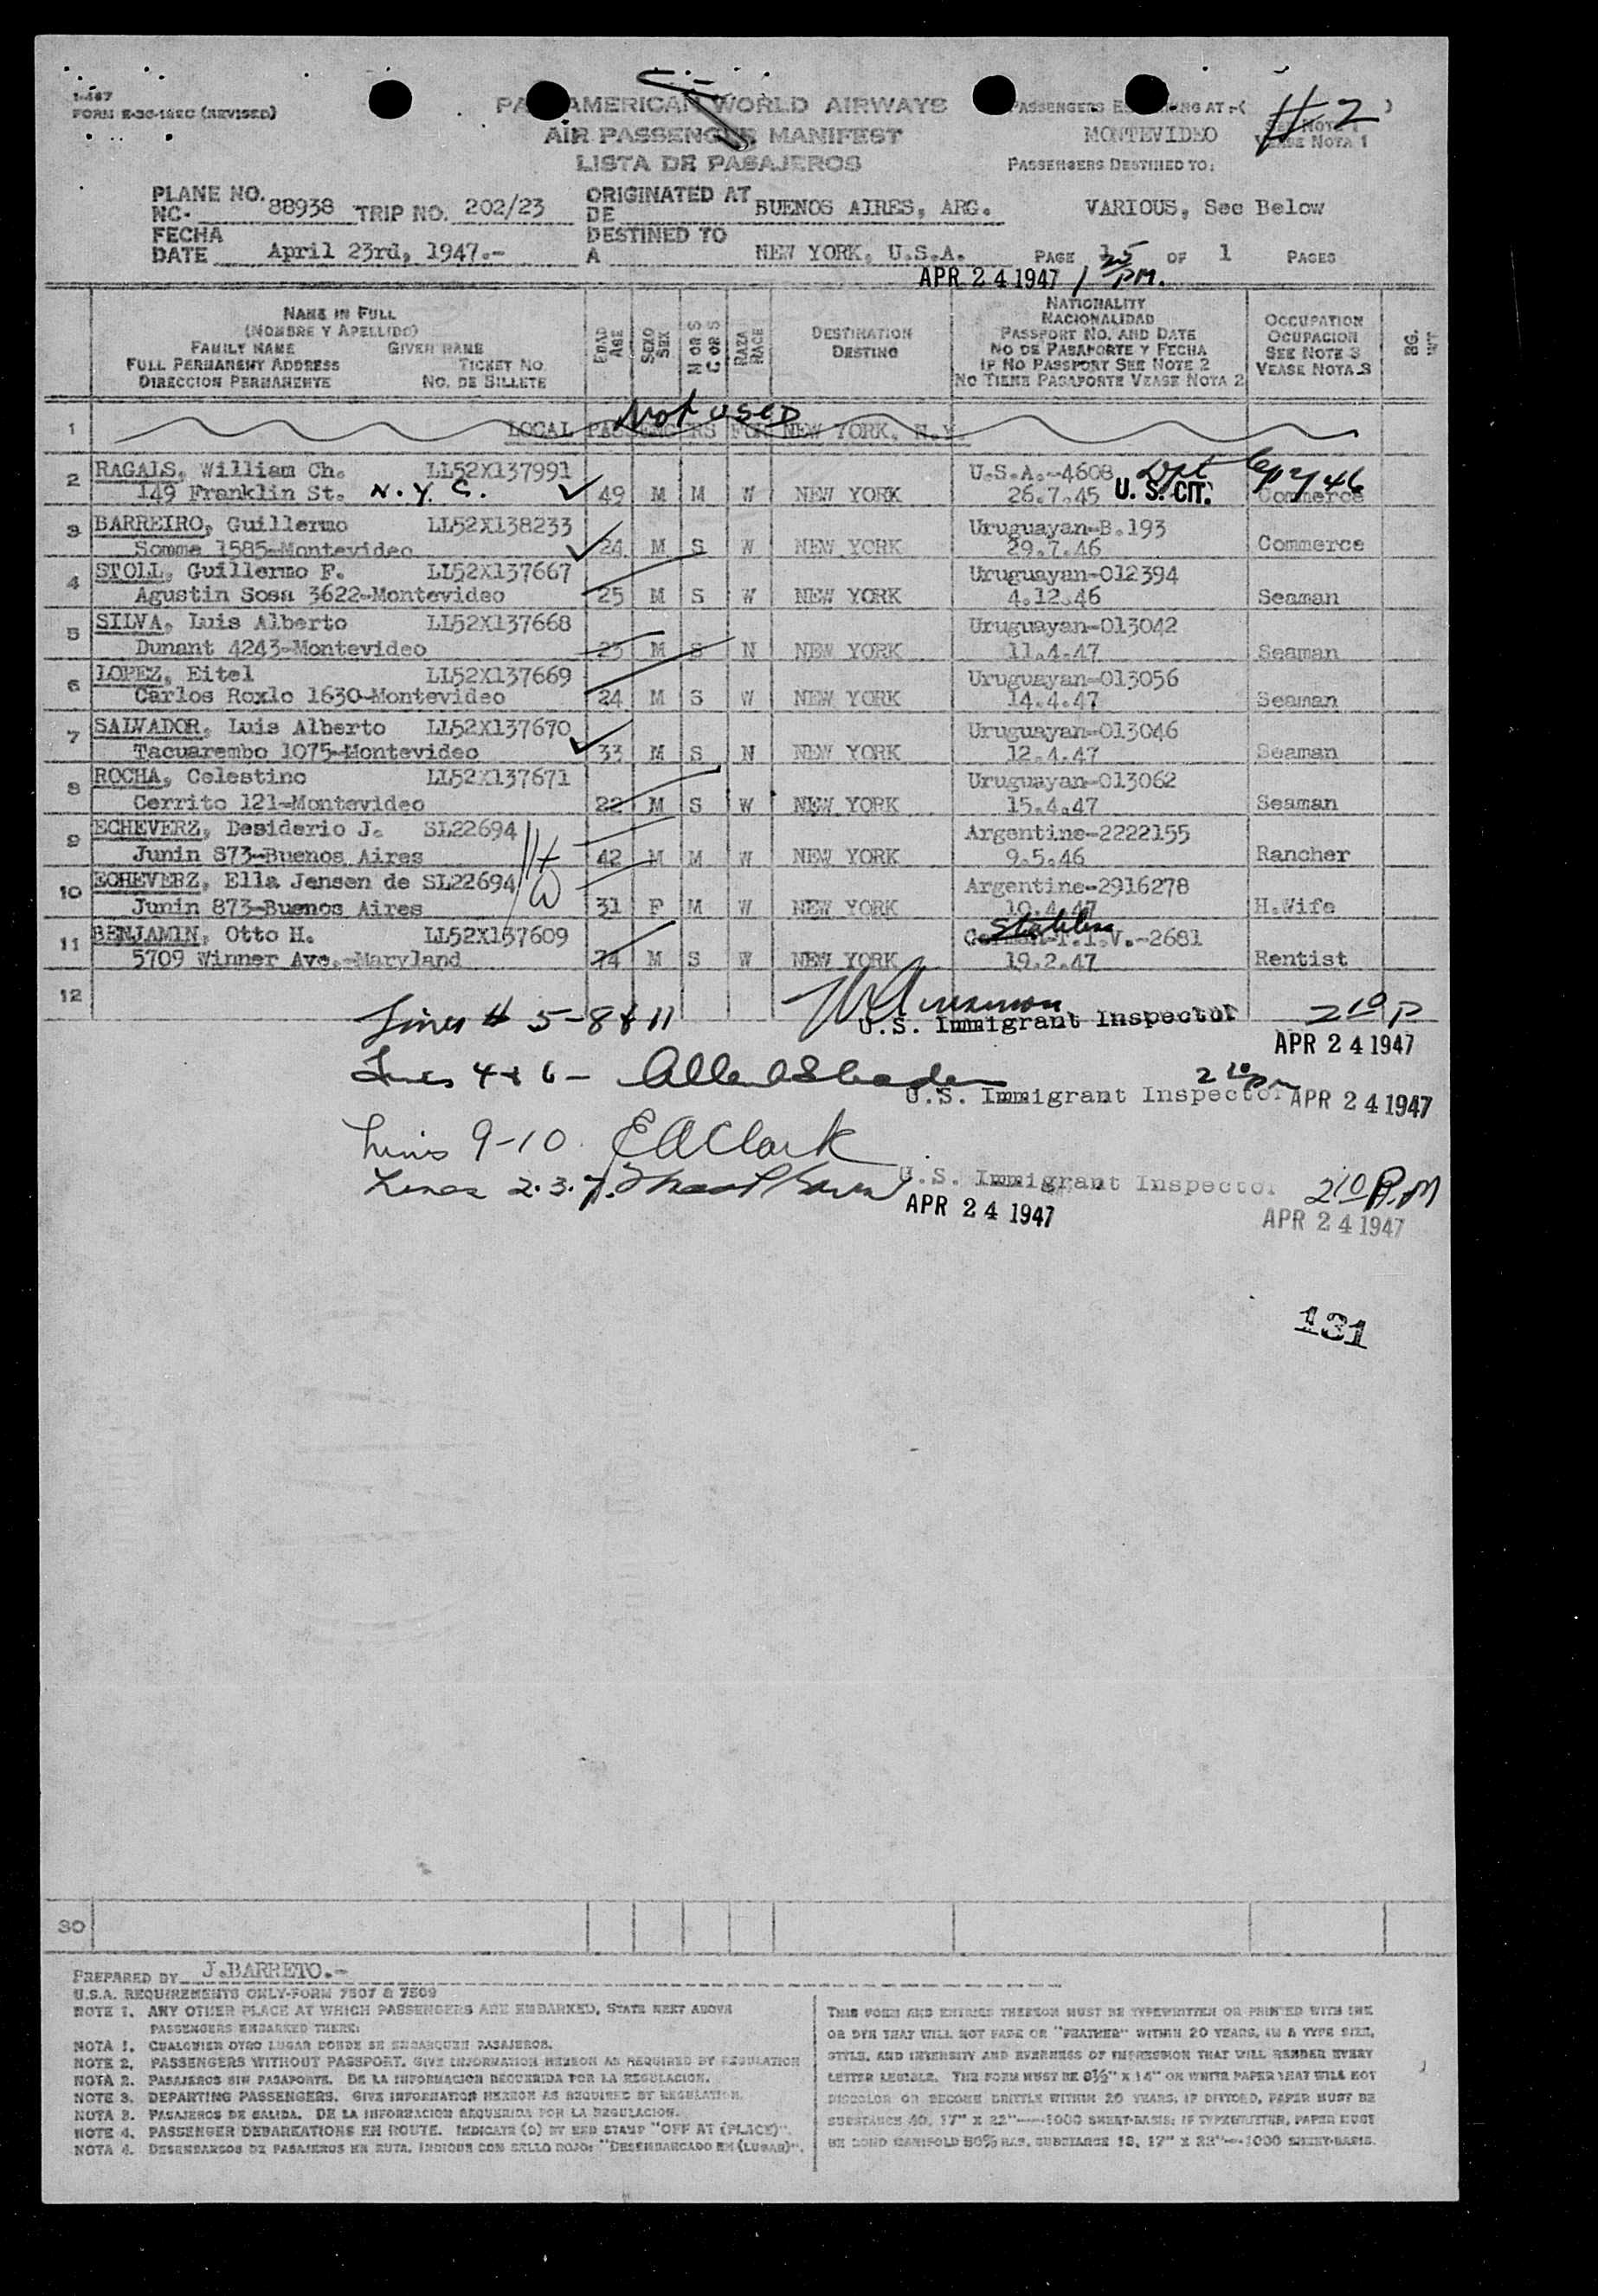 1-467
FORM E-30-18EC (REVISED)
PAN AMERICAN WORLD AIRWAYS
AIR PASSENGER MANIFEST
LISTA DE PASAJEROS
PASSENGERS EMBARKING AT:-(
MONTEVIDEO
SEE NOTE 1
VEASE NOTA 1
)
# 2
PASSENGERS DESTINED TO:
VARIOUS, See Below
PLANE NO.
NC- 88938 TRIP NO. 202/23
ORIGINATED AT
DE BUENOS AIRES, ARG.
FECHA
DATE April 23rd, 1947.-
DESTINED TO
A NEW YORK, U.S.A.
PAGE OF 1 PAGES
APR 24 1947 1 25 PM.
NAME IN FULL
(NOMBRE Y APELLIDO)
FAMILY NAME GIVEN NAME
FULL PERMANENT ADDRESS TICKET NO.
DIRECCION PERMANENTE NO. DE BILLETE
EDAD AGE
SEXO SEX
M OR S C. OR S
RAZA RACE
DESTINATION
DESTINO
NATIONALITY
NACIONALIDAD
PASSPORT NO. AND DATE
NO DE PASAPORTE Y FECHA
IF NO PASSPORT SEE NOTE 2
NO TIENE PASAPORTE VEASE NOTA 2
OCCUPATION
OCUPACION
SEE NOTE 3
VEASE NOTA 3
BG. WT
Not used
1 LOCAL PASSENGERS FOR NEW YORK, N.Y.
2 RAGALS, William Ch. LL52X137991 U.S.A.-4608
149 Franklin St. N.Y.C. 49 M M W NEW YORK 26.7.45 U.S. CIT. Commerce
3 BARREIRO, Guillermo LL52X138233 Uruguayan-B.193
Somme 1585-Montevideo 24 M S W NEW YORK 29.7.46 Commerce
4 STOLL, Guillermo F. LL52X137667 Uruguayan-012394
Agustin Sosa 3622-Montevideo 25 M S W NEW YORK 4.12.46 Seaman
5 SILVA, Luis Alberto LL52X137668 Uruguayan-013042
Dunant 4243-Montevideo 23 M S N NEW YORK 11.4.47 Seaman
6 LOPEZ, Eitel LL52X137669 Uruguayan-013056
Carlos Roxlo 1630-Montevideo 24 M S W NEW YORK 14.4.47 Seaman
7 SALVADOR, Luis Alberto LL52X137670 Uruguayan-013046
Tacuarembo 1075-Montevideo 33 M S N NEW YORK 12.4.47 Seaman
8 ROCHA, Celestino LL52X137671 Uruguayan-013062
Cerrito 121-Montevideo 22 M S W NEW YORK 15.4.47 Seaman
9 ECHEVERZ, Desiderio J. SL22694 H Argentine-2222155
Junin 873-Buenos Aires 42 M M W NEW YORK 9.5.46 Rancher
10 ECHEVERZ, Ella Jensen de SL22694 W Argentine-2916278
Junin 873-Buenos Aires 31 F M W NEW YORK 10.4.47 H.Wife
11 BENJAMIN, Otto H. LL52X137609 Stateless German-T.I.V.-2681
5709 Winner Ave.-Maryland 74 M S W NEW YORK 19.2.47 Rentist
12
Lines # 5-8 & 11 U.S. Immigrant Inspector 2 10 P
APR 24 1947
Lines 4 & 6 - U.S. Immigrant Inspector 2 10 pm APR 24 1947
Lines 9-10. E A Clark
Lines 2.3.7. U.S. Immigrant Inspector 2 10 P.M
APR 24 1947 APR 24 1947
131
30
PREPARED BY J.BARRETO.-
U.S.A. REQUIREMENTS ONLY-FORM 7507 & 7509
NOTE 1. ANY OTHER PLACE AT WHICH PASSENGERS ARE EMBARKED, STATE NEXT ABOVE
PASSENGERS EMBARKED THERE:
NOTA 1. CUALQUIER OTRO LUGAR DONDE SE EMBARQUEN PASAJEROS.
NOTE 2. PASSENGERS WITHOUT PASSPORT. GIVE INFORMATION HEREON AS REQUIRED BY REGULATION
NOTA 2. PASAJEROS SIN PASAPORTE. DE LA INFORMACION REQUERIDA POR LA REGULACION.
NOTE 3. DEPARTING PASSENGERS. GIVE INFORMATION HEREON AS REQUIRED BY REGULATION.
NOTA 3. PASAJEROS DE SALIDA. DE LA INFORMACION REQUERIDA POR LA REGULACION.
NOTE 4. PASSENGER DEBARKATIONS EN ROUTE. INDICATE (D) BY RED STAMP "OFF AT (PLACE)".
NOTA 4. DESEMBARCOS DE PASAJEROS EN RUTA. INDIQUE CON SELLO ROJO: "DESEMBARCADO EN (LUGAR)".
THIS FORM AND ENTRIES THEREON MUST BE TYPEWRITTEN OR PRINTED WITH INK
OR DYE THAT WILL NOT FADE OR "FEATHER" WITHIN 20 YEARS, IN A TYPE SIZE,
STYLE, AND INTENSITY AND EVENNESS OF IMPRESSION THAT WILL RENDER EVERY
LETTER LEGIBLE. THE FORM MUST BE 8½" X 14" ON WHITE PAPER THAT WILL NOT
DISCOLOR OR BECOME BRITTLE WITHIN 20 YEARS. IF DITTOED, PAPER MUST BE
SUBSTANCE 40, 17" X 22"----1000 SHEET-BASIS; IF TYPEWRITTEN, PAPER MUST
BE BOND MANIFOLD 50% RAG, SUBSTANCE 18, 17" X 22"---1000 SHEET-BASIS.